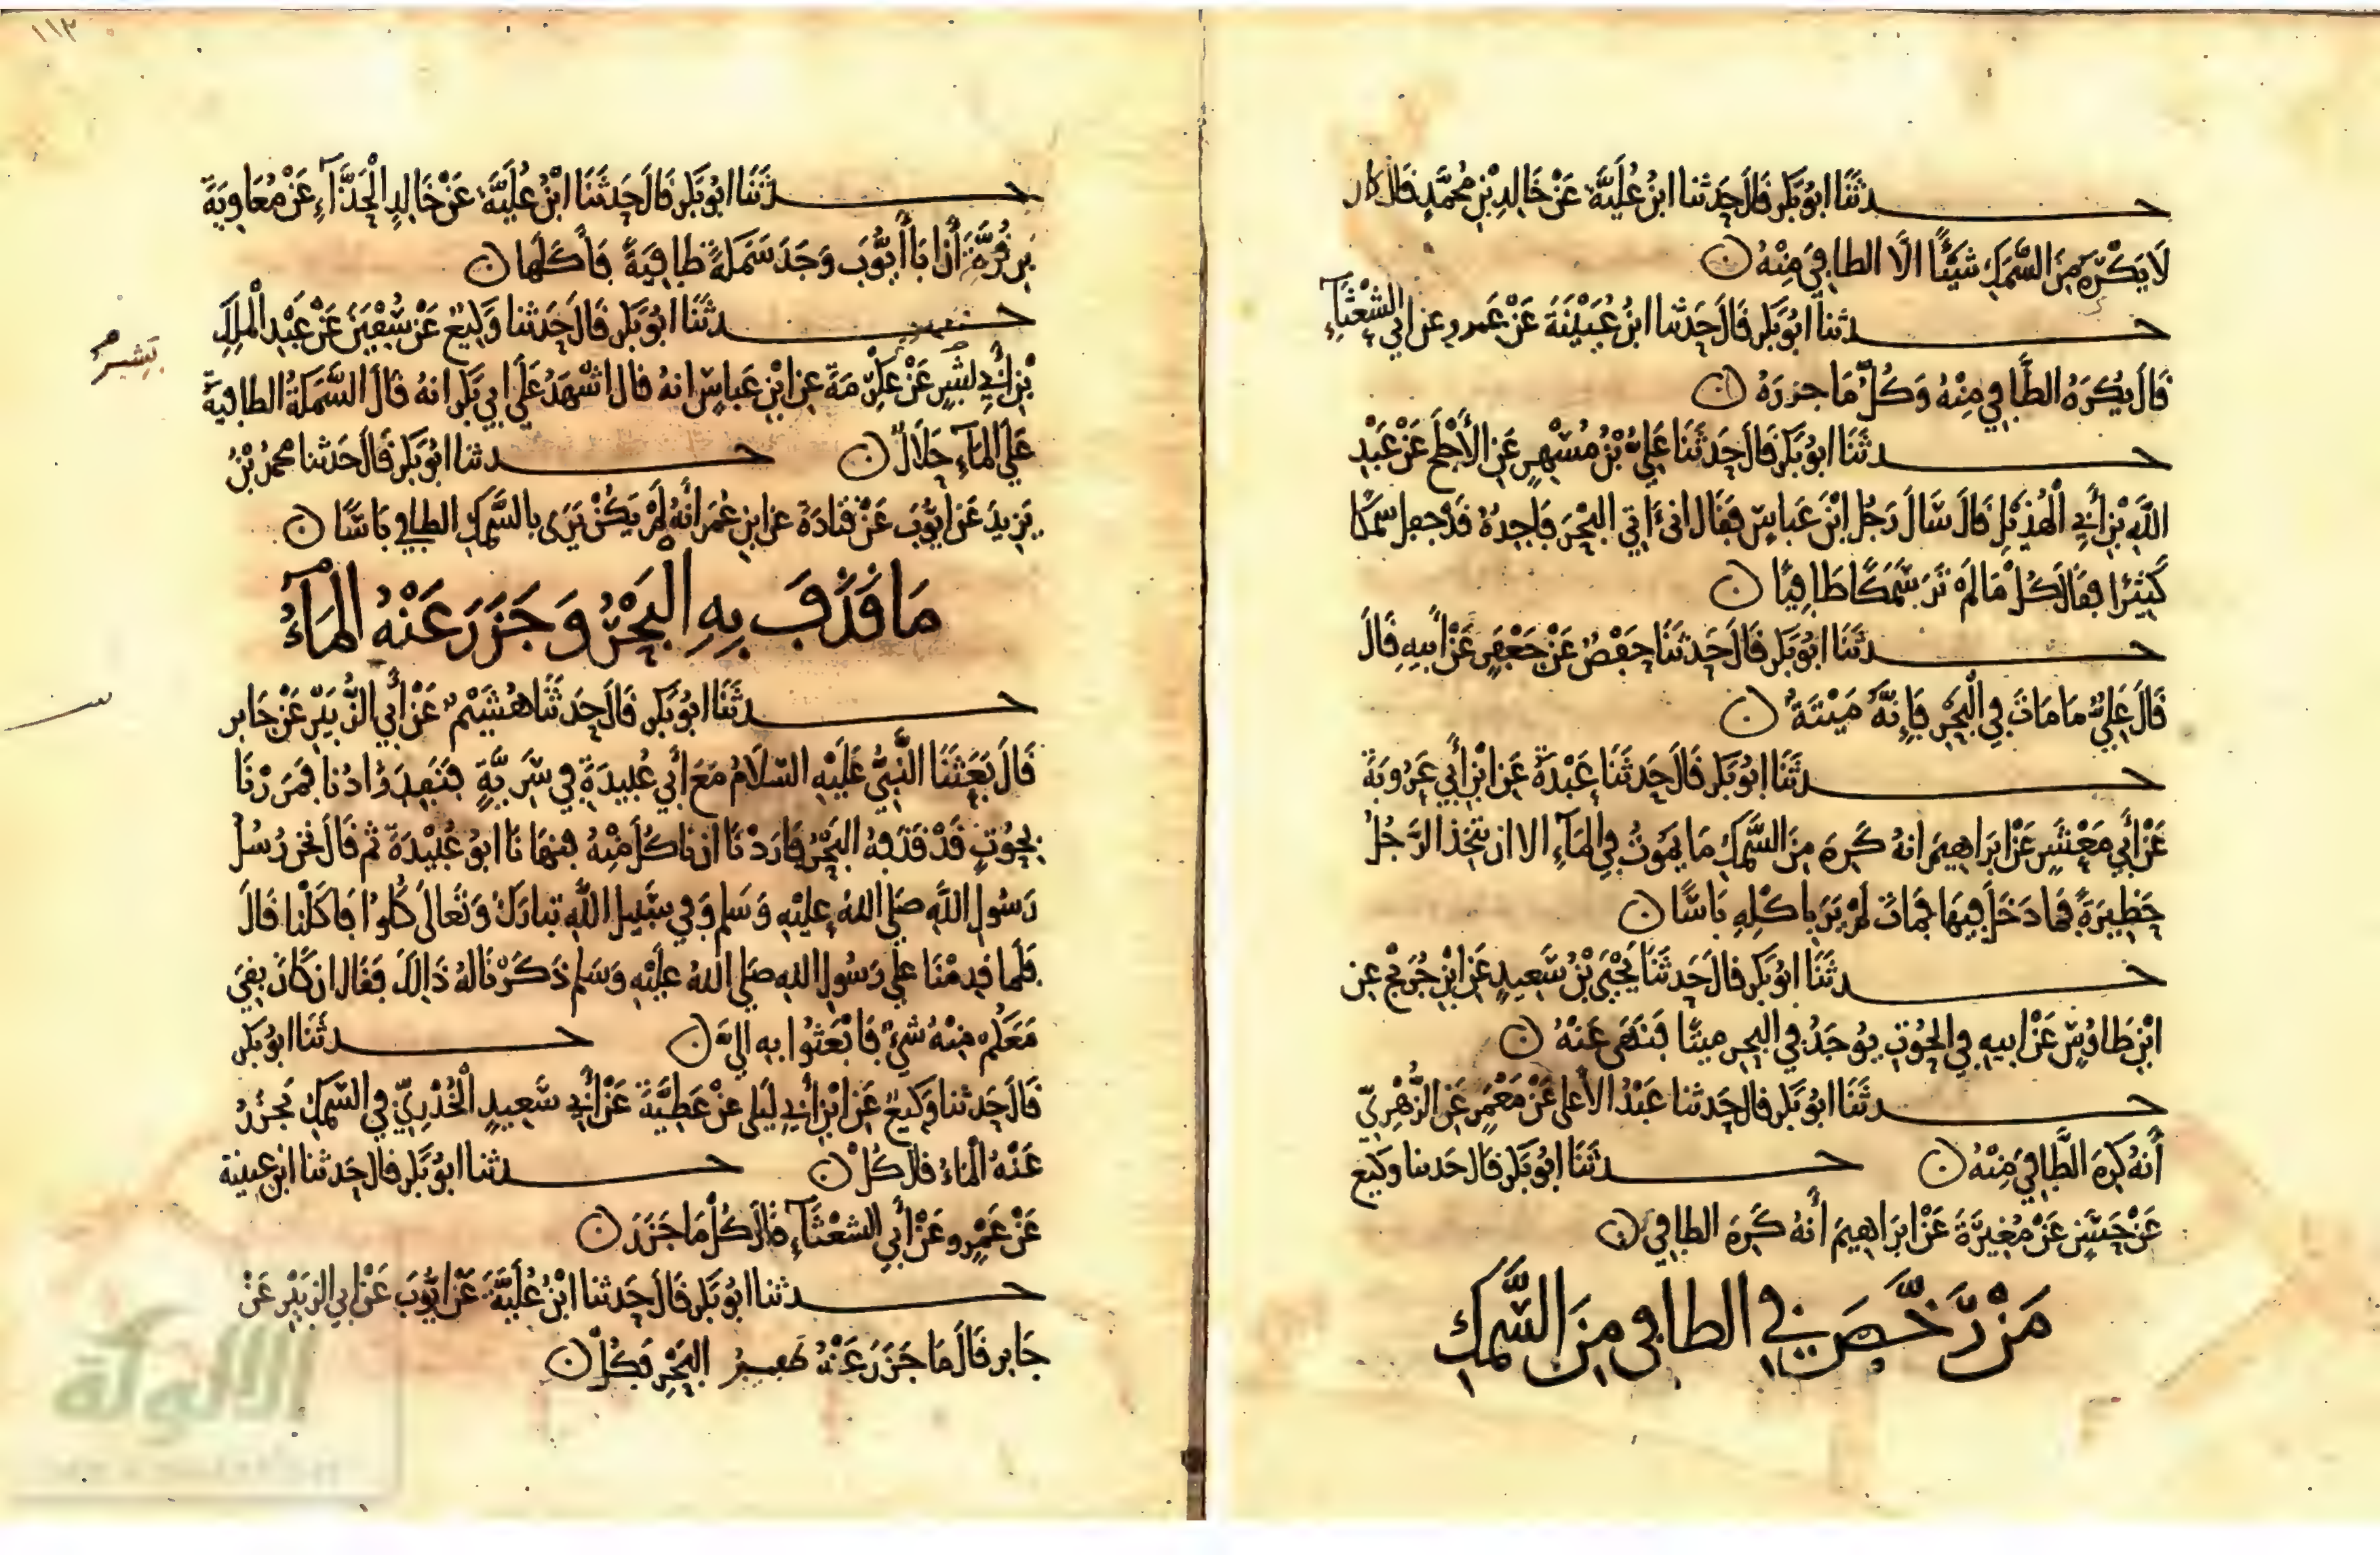 حدثنا ابو بكر قال حدثنا ابن علية عن خالد بن محمد قال كان
لا يكره من السمك شيئا الا الطافي منه ن
حدثنا ابو بكر قال حدثنا ابن عيينة عن عمرو عن ابي الشعثآء
قال يكره الطافي منه وكل ما جزره ن
حدثنا ابو بكر قال حدثنا علي بن مسهر عن الأجلح عن عبد
الله بن أبي الهذيل قال سال رجل ابن عباس فقال اني ءاتي البحر فاجده قد جعل سمكا
كثيرا فقال كل ما لم تر سمكا طافيا ن
حدثنا ابو بكر قال حدثنا حفص عن جعفر عن أبيه قال
قال علي ما مات في البحر فإنه ميتة ن
حدثنا ابو بكر قال حدثنا عبدة عن ابن أبي عروبة
عن أبي معشر عن ابراهيم انه كره من السمك ما يموت في المآء الا ان يتخذ الرجل
حظيرة فما دخل فيها فمات لم ير باكله باسا ن
حدثنا ابو بكر قال حدثنا يحيى بن سعيد عن ابن جريج عن
ابن طاوس عن ابيه في الحوت يوجد في البحر ميتا فنهى عنه ن
حدثنا ابو بكر قال حدثنا عبد الأعلى عن معمر عن الزهري
أنه كره الطافي منه ن حدثنا ابو بكر قال حدثنا وكيع
عن حسن عن مغيرة عن ابراهيم أنه كره الطافي ن
من رخص في الطافي من السمك
١١٣
حدثنا ابو بكر قال حدثنا ابن علية عن خالد الحذآء عن معاوية
بن قرة أن ابا أيوب وجد سمكة طافية فأكلها ن
حدثنا ابو بكر قال حدثنا وكيع عن سفين عن عبد الملك
بن أبي بشير عن عكرمة عن ابن عباس انه قال اشهد على ابي بكر انه قال السمكة الطافية
بشير
على المآء حلال ن حدثنا ابو بكر قال حدثنا محمد بن
يزيد عن ايوب عن قتادة عن ابن عمر أنه لم يكن يرى بالسمك الطافي باسا ن
ما قذف به البحر وجزر عنه المآء
حدثنا ابو بكر قال حدثنا هشيم عن أبي الزبير عن جابر
قال بعثنا النبي عليه السلام مع أبي عبيدة في سرية فنفد زادنا فمررنا
بحوت قد قذفه البحر فاردنا ان ناكل منه فنهانا ابو عبيدة ثم قال نحن رسل
رسول الله صلى الله عليه وسلم وفي سبيل الله تبارك وتعالى كلوا فاكلنا قال
فلما قدمنا على رسول الله صلى الله عليه وسلم ذكرنا له ذالك فقال ان كان بقي
معكم منه شيء فابعثوا به الي ن حدثنا ابو بكر
قال حدثنا وكيع عن ابن أبي ليلى عن عطية عن أبي سعيد الخدري في السمك يجزر
عنه الماء قال كل ن حدثنا ابو بكر قال حدثنا ابن عيينة
عن عمرو عن أبي الشعثآء قال كل ما جزر ن
حدثنا ابو بكر قال حدثنا ابن علية عن ايوب عن ابي الزبير عن
جابر قال ما جزر عنه البحر فكل ن
الألوكة